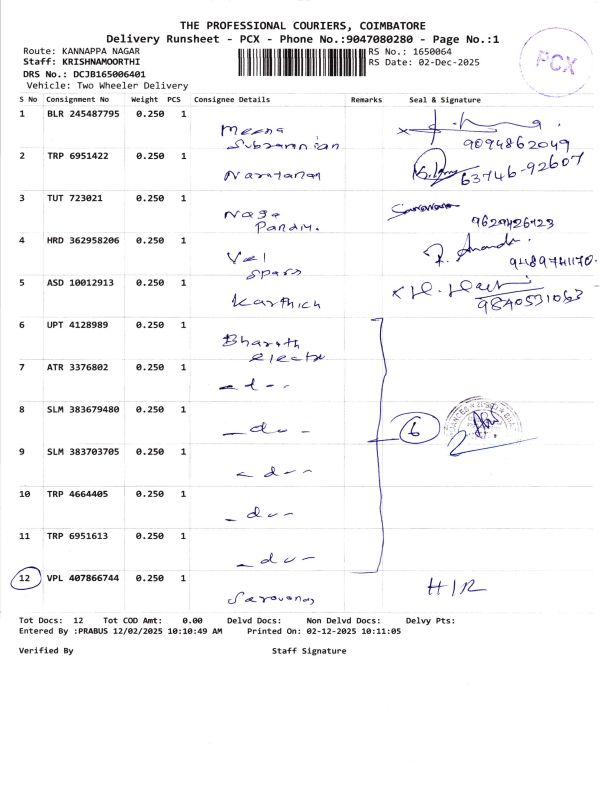 THE PROFESSIONAL COURIERS, COIMBATORE
Delivery Runsheet - PCX - Phone No.:9047080280 - Page No.:1
Route: KANNAPPA NAGAR RS No.: 1650064
Staff: KRISHNAMOORTHI RS Date: 02-Dec-2025
DRS No.: DCJB165006401
Vehicle: Two Wheeler Delivery
PCX
S No Consignment No Weight PCS Consignee Details Remarks Seal & Signature
1 BLR 245487795 0.250 1 Meena
Subramanian 9094862049
2 TRP 6951422 0.250 1
Narayanan 63746-92607
3 TUT 723021 0.250 1 Naga
Pandi. 9629426423
4 HRD 362958206 0.250 1 Vel
Spars 9489741170.
5 ASD 10012913 0.250 1
Karthick 9840531063
6 UPT 4128989 0.250 1 Bharath
electro
7 ATR 3376802 0.250 1
- d - -
8 SLM 383679480 0.250 1
- do - 6
9 SLM 383703705 0.250 1
- d - -
10 TRP 4664405 0.250 1
- do -
11 TRP 6951613 0.250 1
- do -
12 VPL 407866744 0.250 1 H/R
Saravanas
Tot Docs: 12 Tot COD Amt: 0.00 Delvd Docs: Non Delvd Docs: Delvy Pts:
Entered By :PRABUS 12/02/2025 10:10:49 AM Printed On: 02-12-2025 10:11:05
Verified By Staff Signature